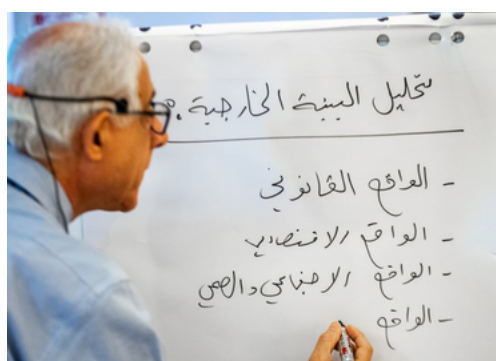 تحليل البيئة الخارجية.
- الواقع القانوني
- الواقع الاقتصادي
- الواقع الاجتماعي والصحي
- الواقع